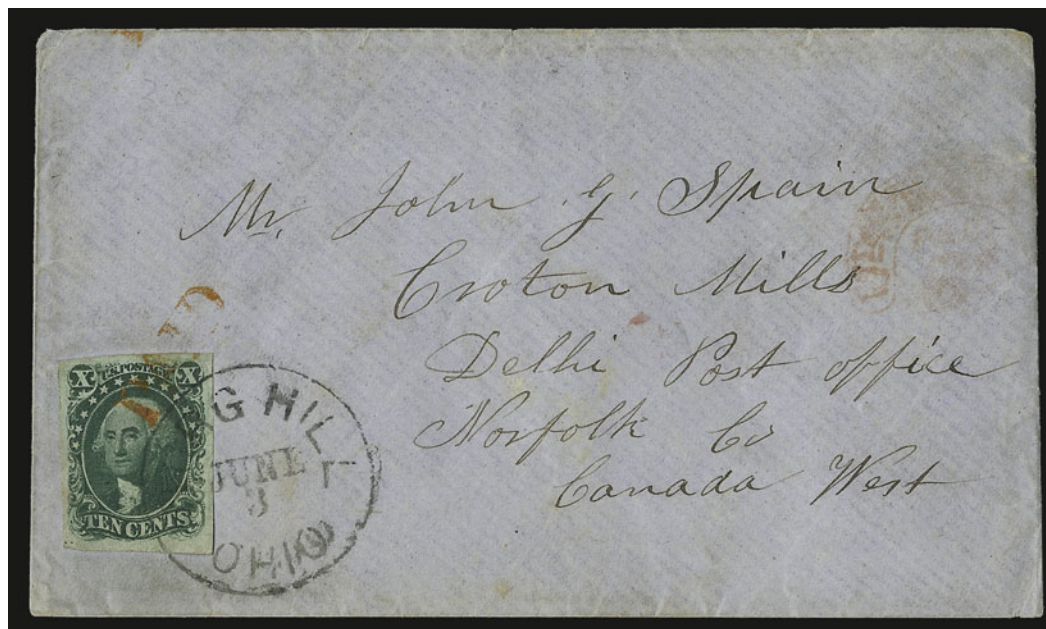 Mr. John G. Spain
Croton Mills
Delhi Post office
Norfolk Co
Canada West
X U.S. POSTAGE X
TEN CENTS
G HILL
JUNE
3
OHIO